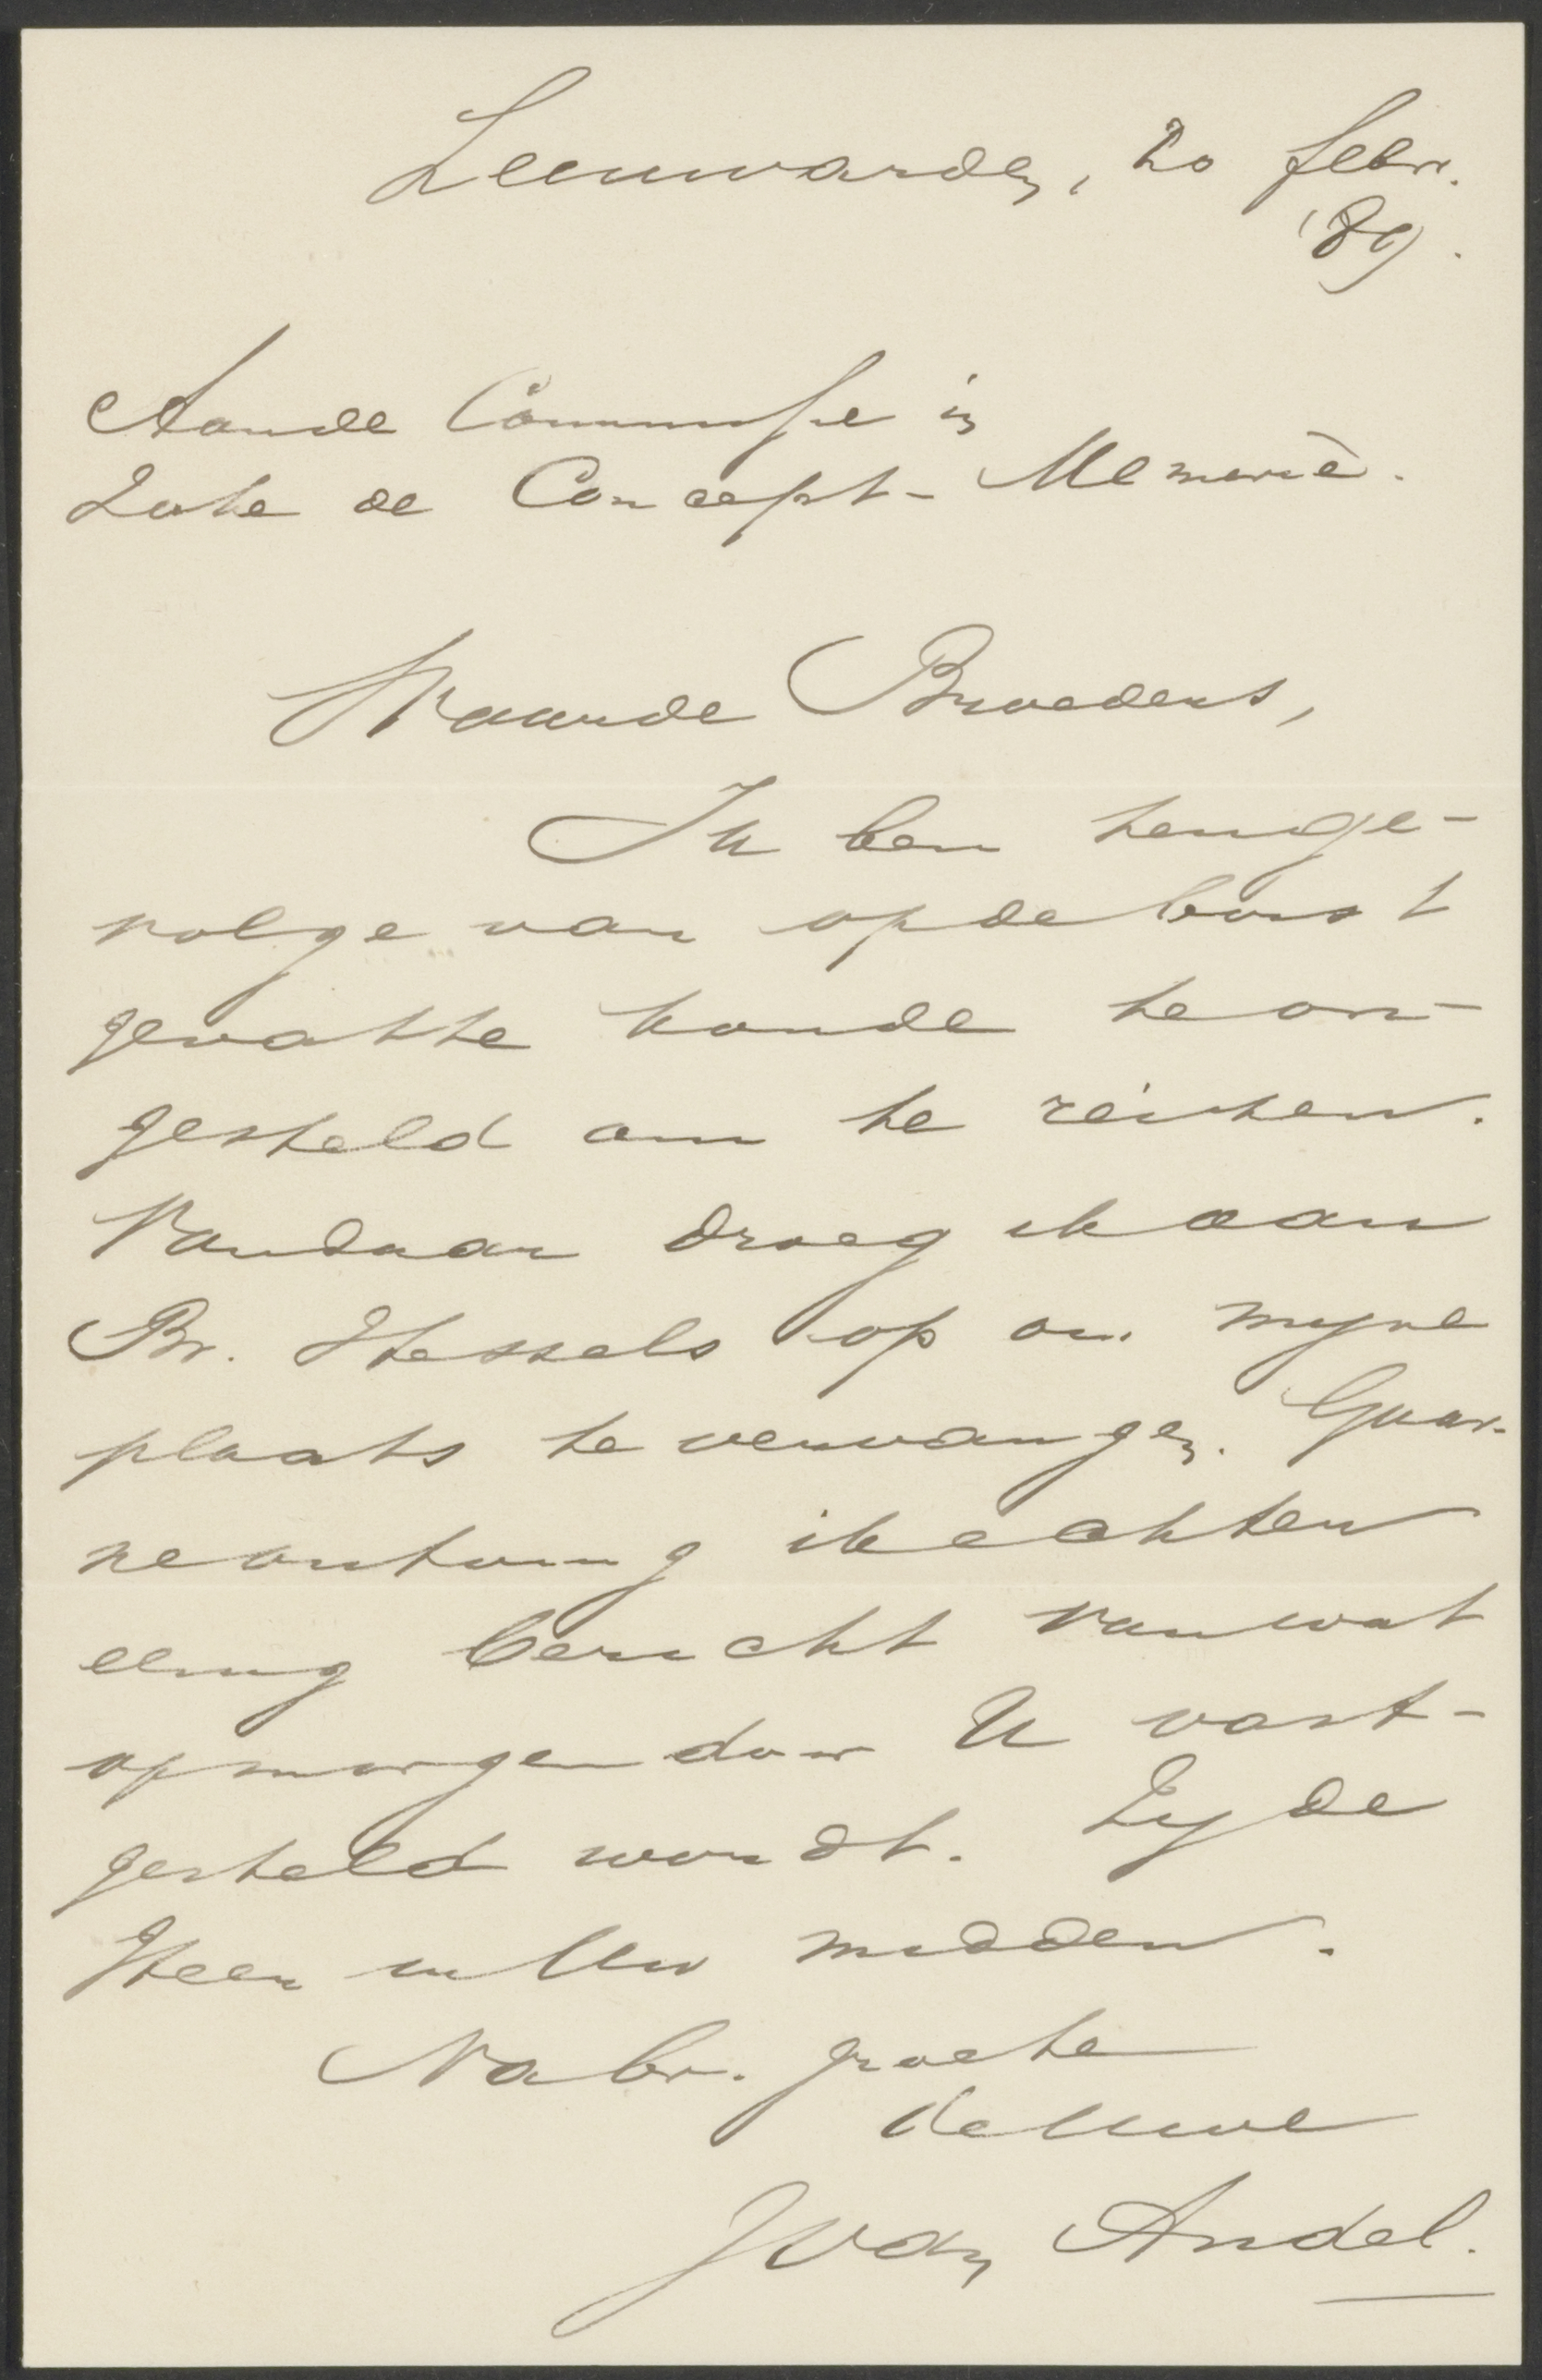 Leeuwarden, 20 febr.
'89.
Aan de Commissie in
Zake de Concept-Memorie.
Waarde Broeders,
Ik ben tenge-
volge van op de borst
gevatte koude te on-
gesteld om te reizen.
Vandaar droeg ik aan
Br. Hessels op om mijne
plaats te vervangen. Gaar-
ne ontving ik echter
eenig bericht van wat
op morgen door U vast-
gesteld wordt. Zij de
Heer in Uw midden.
Na br. groete
de Uwe
JvanAndel.